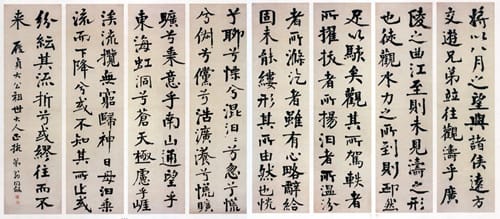 將以八月之望與諸侯遠方
交遊兄弟並往觀濤乎廣
陵之曲江至則未見濤之形
也徒觀水力之所到則卹然
足以駭矣觀其所駕軼者
所擢拔者所揚汩者所溫汾
者所滌汔者雖有心略辭給
固未能縷形其所由然也怳
兮聊兮慄兮混汩汩兮忽兮慌
兮俶兮儻兮浩瀇瀁兮慌曠
曠兮秉意乎南山通望乎
東海虹洞兮蒼天極慮乎崖
涘流攬無窮歸神日母汩乘
流而下降兮或不知其所止或
紛紜其流折兮忽繆往而不
來 貞大公祖世大人正 弟翁同龢